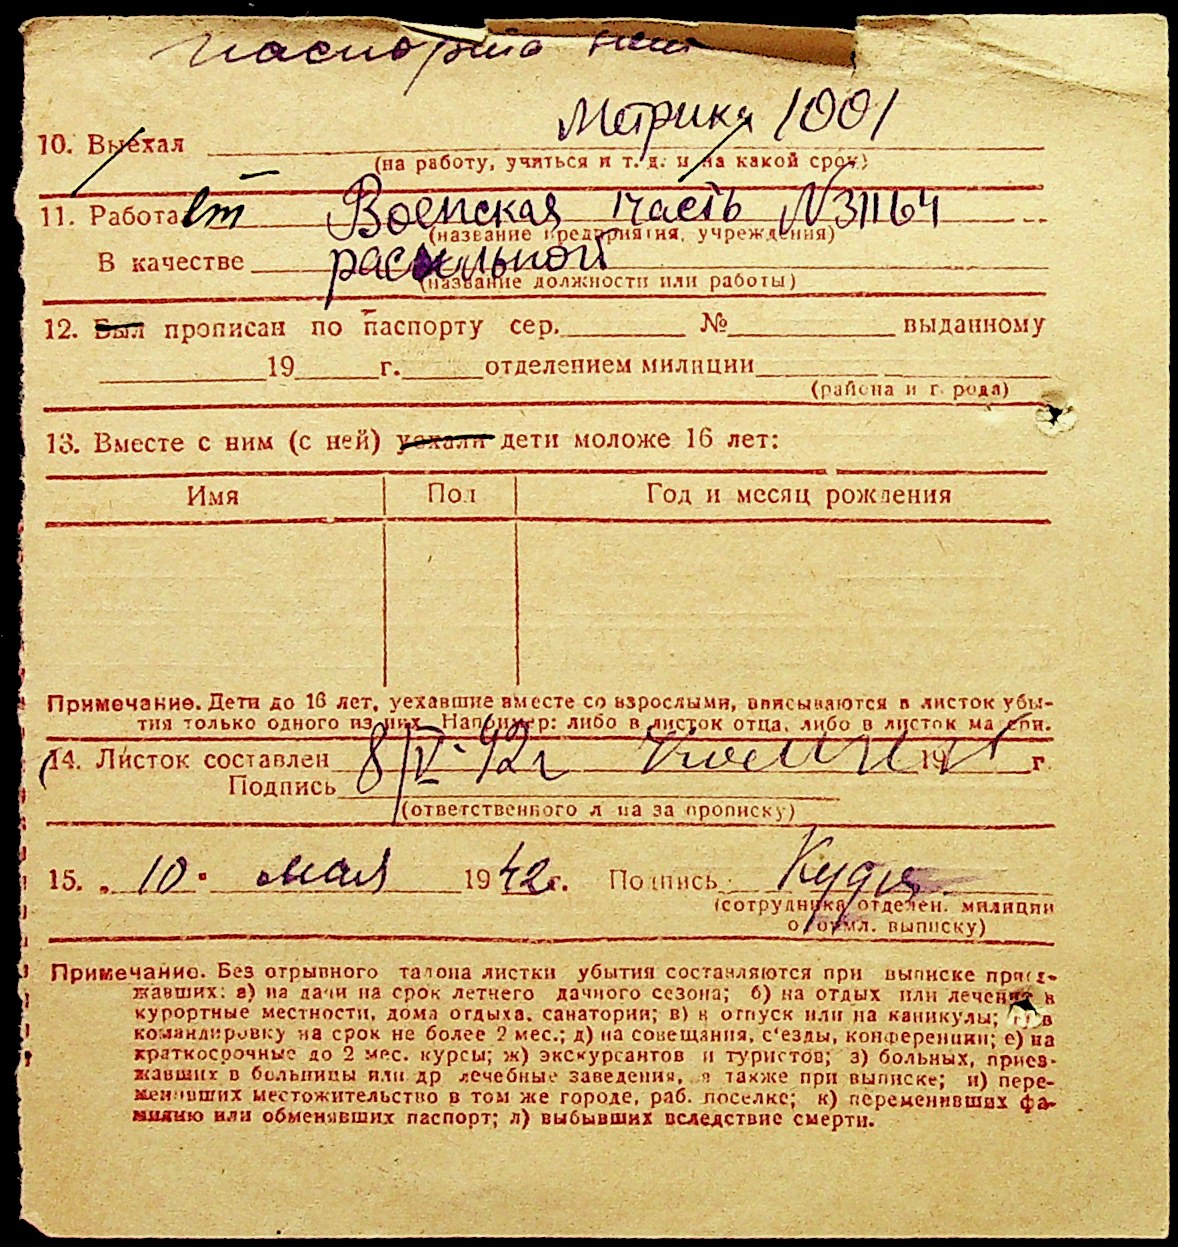 паспорта нет
Метрика 1001
10. Выехал
(на работу, учиться и т. д. и на какой срок)
11. Работает Воинская часть №31164
(название предприятия, учреждения)
В качестве рассыльной
(название должности или работы)
12. Был прописан по паспорту сер. № выданному
19 г. отделением милиции
(района и города)
13. Вместе с ним (с ней) уехали дети моложе 16 лет:
Имя Пол Год и месяц рождения
Примечание. Дети до 16 лет, уехавшие вместе со взрослыми, вписываются в листок убы-
тия только одного из них. Например: либо в листок отца, либо в листок матери.
14. Листок составлен 8/V-42г 19 г.
Подпись
(ответственного лица за прописку)
15. „ 10 " мая 1942г. Подпись
(сотрудника отделен. милиции
оформл. выписку)
Примечание. Без отрывного талона листки убытия составляются при выписке приез-
жавших: а) на дачи на срок летнего дачного сезона; б) на отдых или лечение в
курортные местности, дома отдыха, санатории; в) в отпуск или на каникулы; г) в
командировку на срок не более 2 мес.; д) на совещания, с'езды, конференции; е) на
краткосрочные до 2 мес. курсы; ж) экскурсантов и туристов; з) больных, приез-
жавших в больницы или др лечебные заведения, а также при выписке; и) пере-
менивших местожительство в том же городе, раб. поселке; к) переменивших фа-
милию или обменявших паспорт; л) выбывших вследствие смерти.